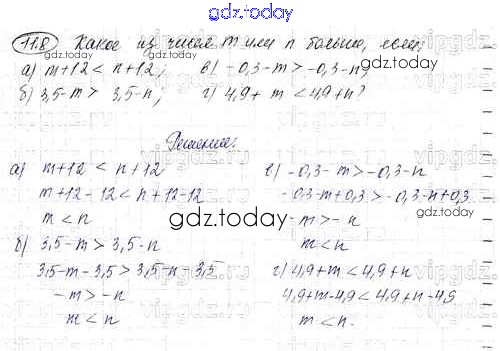 gdz.today
11.8 Какое из чисел m или n больше, если:
а) m+12 < n+12; в) -0,3-m > -0,3-n;
б) 3,5-m > 3,5-n; г) 4,9+m < 4,9+n?
gdz.today
Решение.
а) m+12 < n+12
m+12-12 < n+12-12
m < n
б) 3,5-m > 3,5-n
3,5-m-3,5 > 3,5-n-3,5
-m > -n
m < n
в) -0,3-m > -0,3-n
-0,3-m+0,3 > -0,3-n+0,3
-m > -n
m < n
г) 4,9+m < 4,9+n
4,9+m-4,9 < 4,9+n-4,9
m < n.
gdz.today
gdz.today
gdz.today